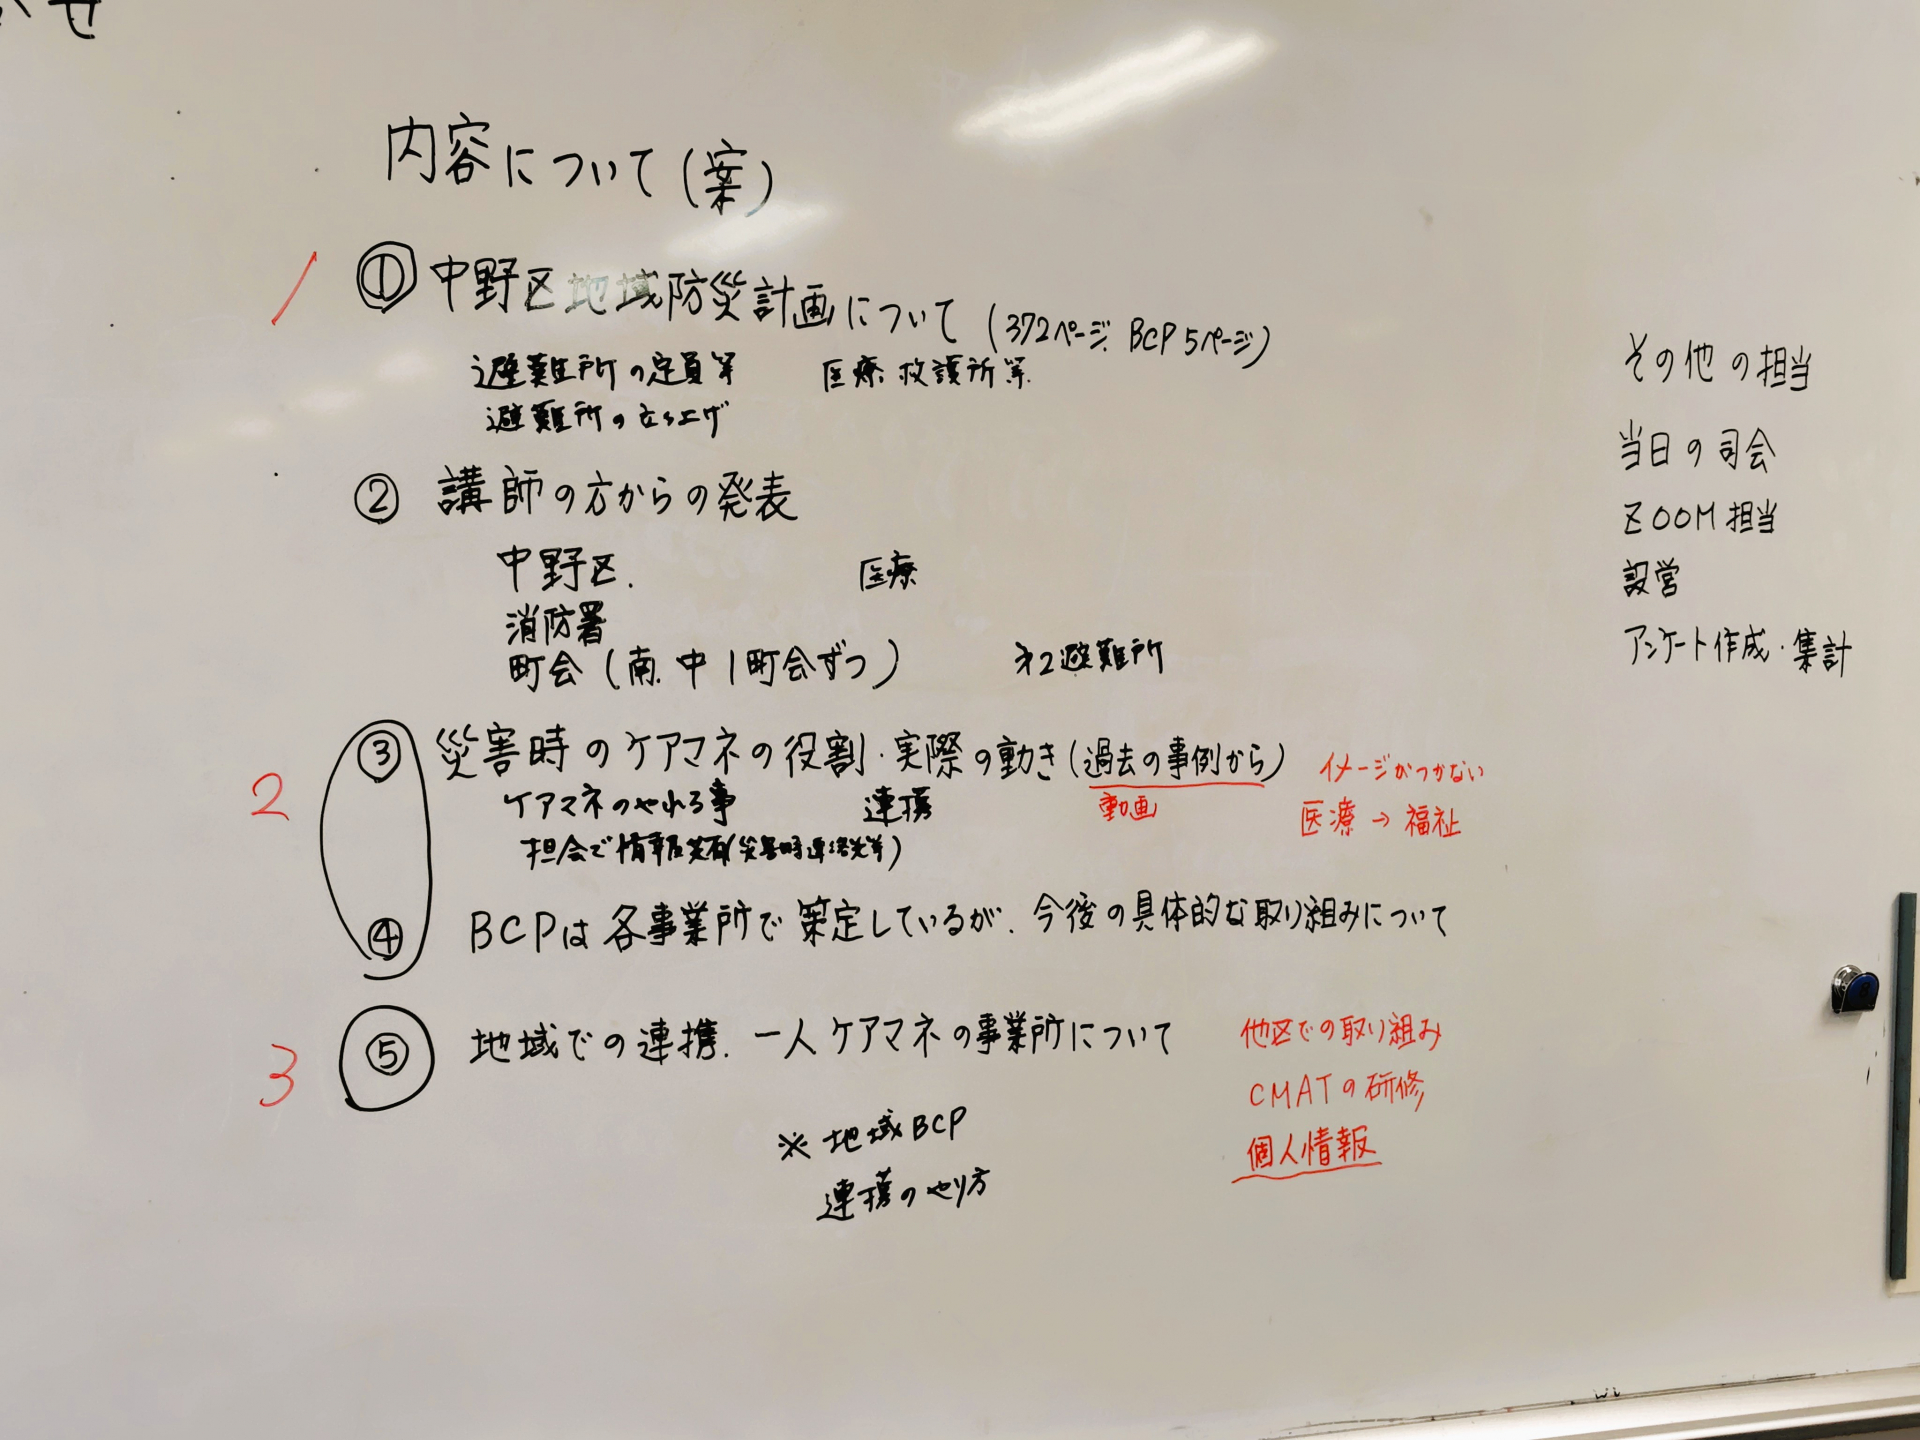 せ
内容について(案)
1 ① 中野区地域防災計画について (372ページ. BCP 5ページ)
避難所の定員等 医療救護所等
避難所の立ち上げ
② 講師の方からの発表
中野区. 医療
消防署
町会 (南. 中 1町会ずつ) 才2避難所
2 ③ 災害時のケアマネの役割・実際の動き (過去の事例から) イメージがつかない
ケアマネのやれる事 連携 動画 医療→福祉
担会で情報共有(災害時連絡先等)
④ BCPは各事業所で策定しているが. 今後の具体的な取り組みについて
3 ⑤ 地域での連携. 一人ケアマネの事業所について 他区での取り組み
CMATの研修
※地域BCP 個人情報
連携のやり方
その他の担当
当日の司会
ZOOM担当
設営
アンケート作成・集計